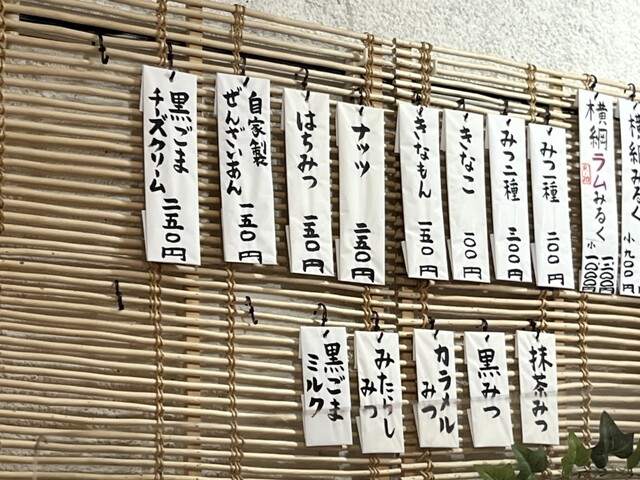 横綱みるく
小 九〇〇円
横綱ラムみるく
小
みつ一種 二〇〇円
みつ二種 三〇〇円
きなこ 一〇〇円
きなもん 一五〇円
ナッツ 二五〇円
はちみつ 一五〇円
自家製
ぜんざいあん 一五〇円
黒ごま
チーズクリーム 二五〇円
抹茶みつ
黒みつ
カラメル
みつ
みたらし
みつ
黒ごま
ミルク